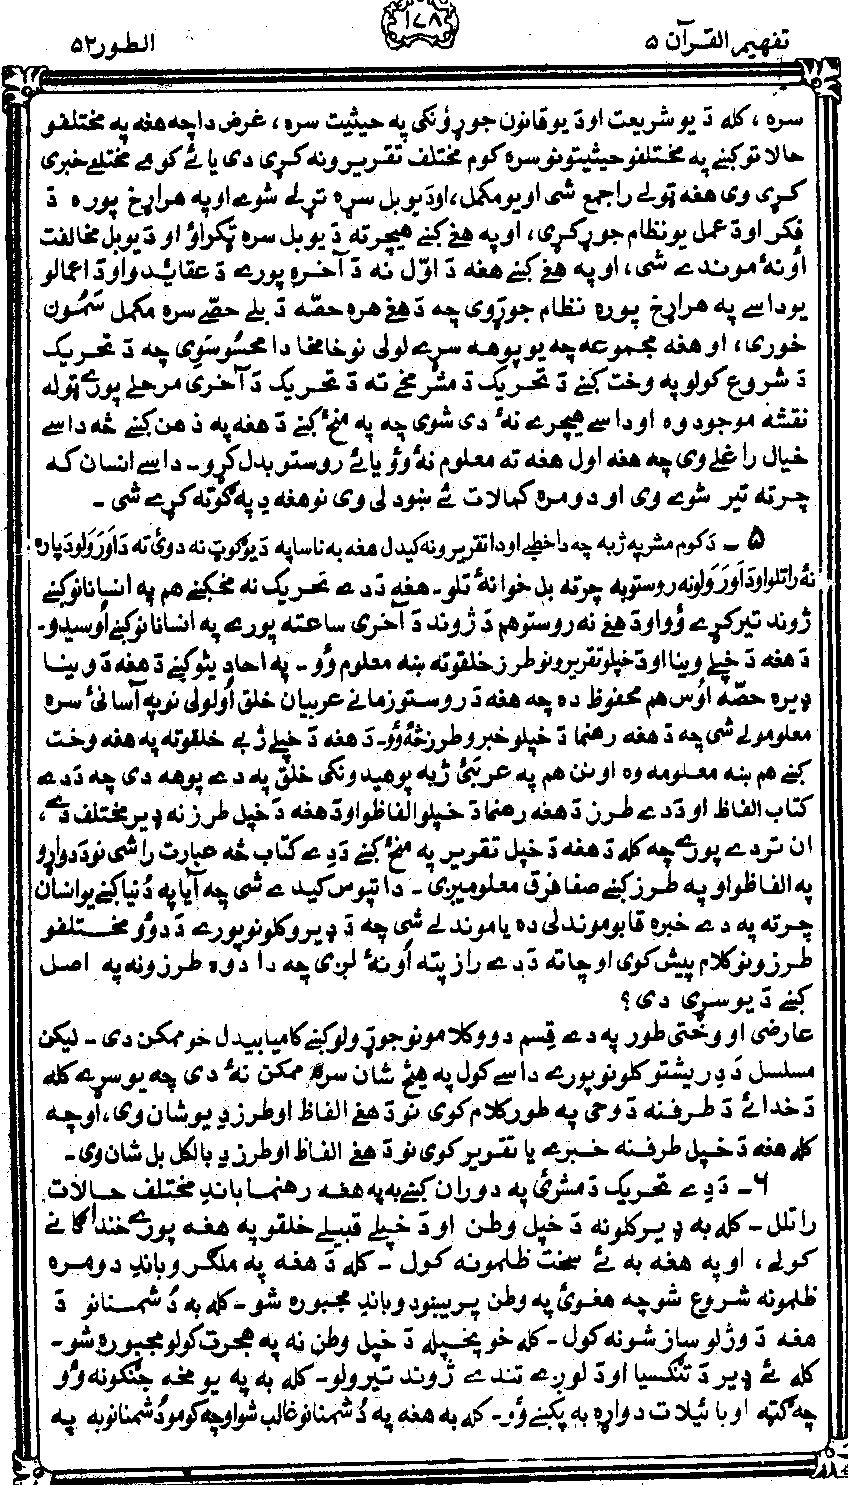 تفهيم القرآن ۵
۱۷۸
الطور ۵۲
سره ، کله دَ يو شريعت او دَ يو قانون جوړوُنکی په حيثيت سره ، غرض دا چه هغه په مختلفو
حالاتو کښے په مختلفو حيثيتونو سره کوم مختلف تقريرونه کړی دی يا ئے کومے مختلے خبری
کړی وی هغه ټولے راجمع شی او يو مکمل، او دَ يو بل سره تړلے شوے او په هر اړخ پوره دَ
فکر او دَ عمل يو نظام جوړ کړی، او په هغے کښے هيچرته دَ يو بل سره ټکراؤ او دَ يو بل مخالفت
اُو نهٔ موندے شی، او په هغے کښے هغه دَ اوّل نه دَ آخره پورے دَ عقائيدو او دَ اعمالو
يو داسے په هر اړخ پوره نظام جوړوی چه دَ هغے هره حصّه دَ بلے حصّے سره مکمل سمون
خوری، او هغه مجموعه چه يو پوهه سړے لولی نو خامخا دا محسُوسَوی چه دَ تحريک
دَ شروع کولو په وخت کښے دَ تحريک دَ مشر مخے ته دَ تحريک دَ آخری مرحلے پورے ټوله
نقشه موجود وه او داسے هيچرے نهٔ دی شوی چه په منځ کښے دَ هغه په ذهن کښے څه داسے
خيال راغلے وی چه هغه اول هغه ته معلوم نهٔ وؤ يا ئے روستو بدل کړو۔ داسے انسان که
چرته تير شوے وی او دومره کمالات ئے ښودلی وی نو هغه دِ په ګوته کړے شی ۔
۵ ۔ دَ کوم مشر په ژبه چه دا خطبے او دا تقريرونه کيدل هغه به ناساپه دَ يو ګوټ نه دوئ ته دَ اَورَولو دَپاره
نهٔ راتلو او دَ اَورَولو نه روستو به چرته بل خوا نهٔ تلو۔ هغه دَ دے تحريک نه مخکښے هم په انسانانو کښے
ژوند تير کړے وؤ او دَ هغے نه روستو هم دَ ژوند دَ آخری ساعته پورے په انسانانو کښے اُوسيدو۔
دَ هغه دَ خپلے وينا او دَ خپلو تقريرونو طرز خلقو ته ښه معلوم وُو۔ په احاديثو کښے دَ هغه دَ وينا
ډيره حصّه اوُس هم محفوظ ده چه هغه دَ روستو زمانے عربيان خلق اُولولی نو په آسانئ سره
معلومولے شی چه دَ هغه رهنما دَ خپلو خبرو طرز څهٔ وؤ۔ دَ هغه دَ خپلے ژبے خلقو ته په هغه وخت
کښے هم ښه معلومه وه او نن هم په عربئ ژبه پوهيدونکی خلق په دے پوهه دی چه دَ دے
کتاب الفاظ او دَ دے طرز دَ هغه رهنما دَ خپلو الفاظو او دَ هغه دَ خپل طرز نه ډير مختلف دے،
ان تردے پورے چه کله دَ هغه دَ خپل تقرير په منځ کښے دَ دے کتاب څه عبارت راشی نو دَ دواړو
په الفاظو او په طرز کښے صفا فرق معلوميږی ۔ دا تپوس کيدے شی چه آيا په دُنيا کښے يو انسان
چرته په دے خبره قابو موندلی ده يا موندلے شی چه دَ ډيرو کلونو پورے دَ دوؤ مختلفو
طرزونو کلام پيش کوی او چا ته دَ دے راز پته اُو نهٔ لږی چه دا دوه طرزونه په اصل
کښے دَ يو سړی دی ؟
عارضی او وختی طور په دے قسم دوو کلامونو جوړولو کښے کاميابيدل خو ممکن دی ۔ ليکن
مسلسل دَ درېشتو کلونو پورے داسے کول په هيڅ شان سره ممکن نهٔ دی چه يو سړے کله
دَ خدائے دَ طرفنه دَ وحی په طور کلام کوی نو دَ هغے الفاظ او طرز دِ يو شان وی، او چه
کله هغه دَ خپل طرفنه خبرے يا تقرير کوی نو دَ هغے الفاظ او طرز دِ بالکل بل شان وی۔
۶۔ دَ دے تحريک دَ مشرئ په دوران کښے به په هغه رهنما باندِ مختلف حالات
راتلل۔ کله به ډير کلونه دَ خپل وطن او دَ خپلے قبيلے خلقو په هغه پورے خنداګانے
کولے ، او په هغه به ئے سخت ظلمونه کول ۔ کله دَ هغه په ملګرو باندِ دومره
ظلمونه شروع شو چه هغوئ په وطن پريښودو باندِ مجبوره شو۔ کله به دُشمنانو دَ
هغه دَ وژلو سازشونه کول۔ کله خو پخپله دَ خپل وطن نه په هجرت کولو مجبوره شو۔
کله ئے ډير دَ تنګسيا او دَ لوږے تندے ژوند تيرولو۔ کله به په يو مخه جنګونه وؤ
چه ګټه او بائيلات دواړه به پکښے وُو۔ کله به هغه په دُشمنانو غالب شو او چه کومو دُشمنانو به په